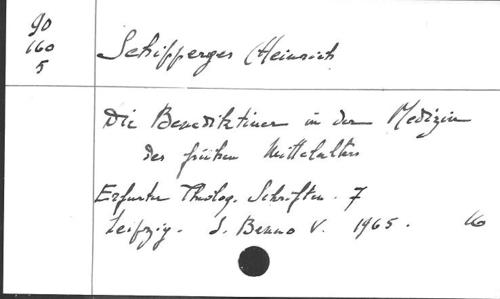 90
160
5
Schipperges Heinrich
Die Benediktiner in der Medizin
des frühen Mittelalters
Erfurter Theolog. Schriften. 7
Leipzig. S. Benno V. 1965.